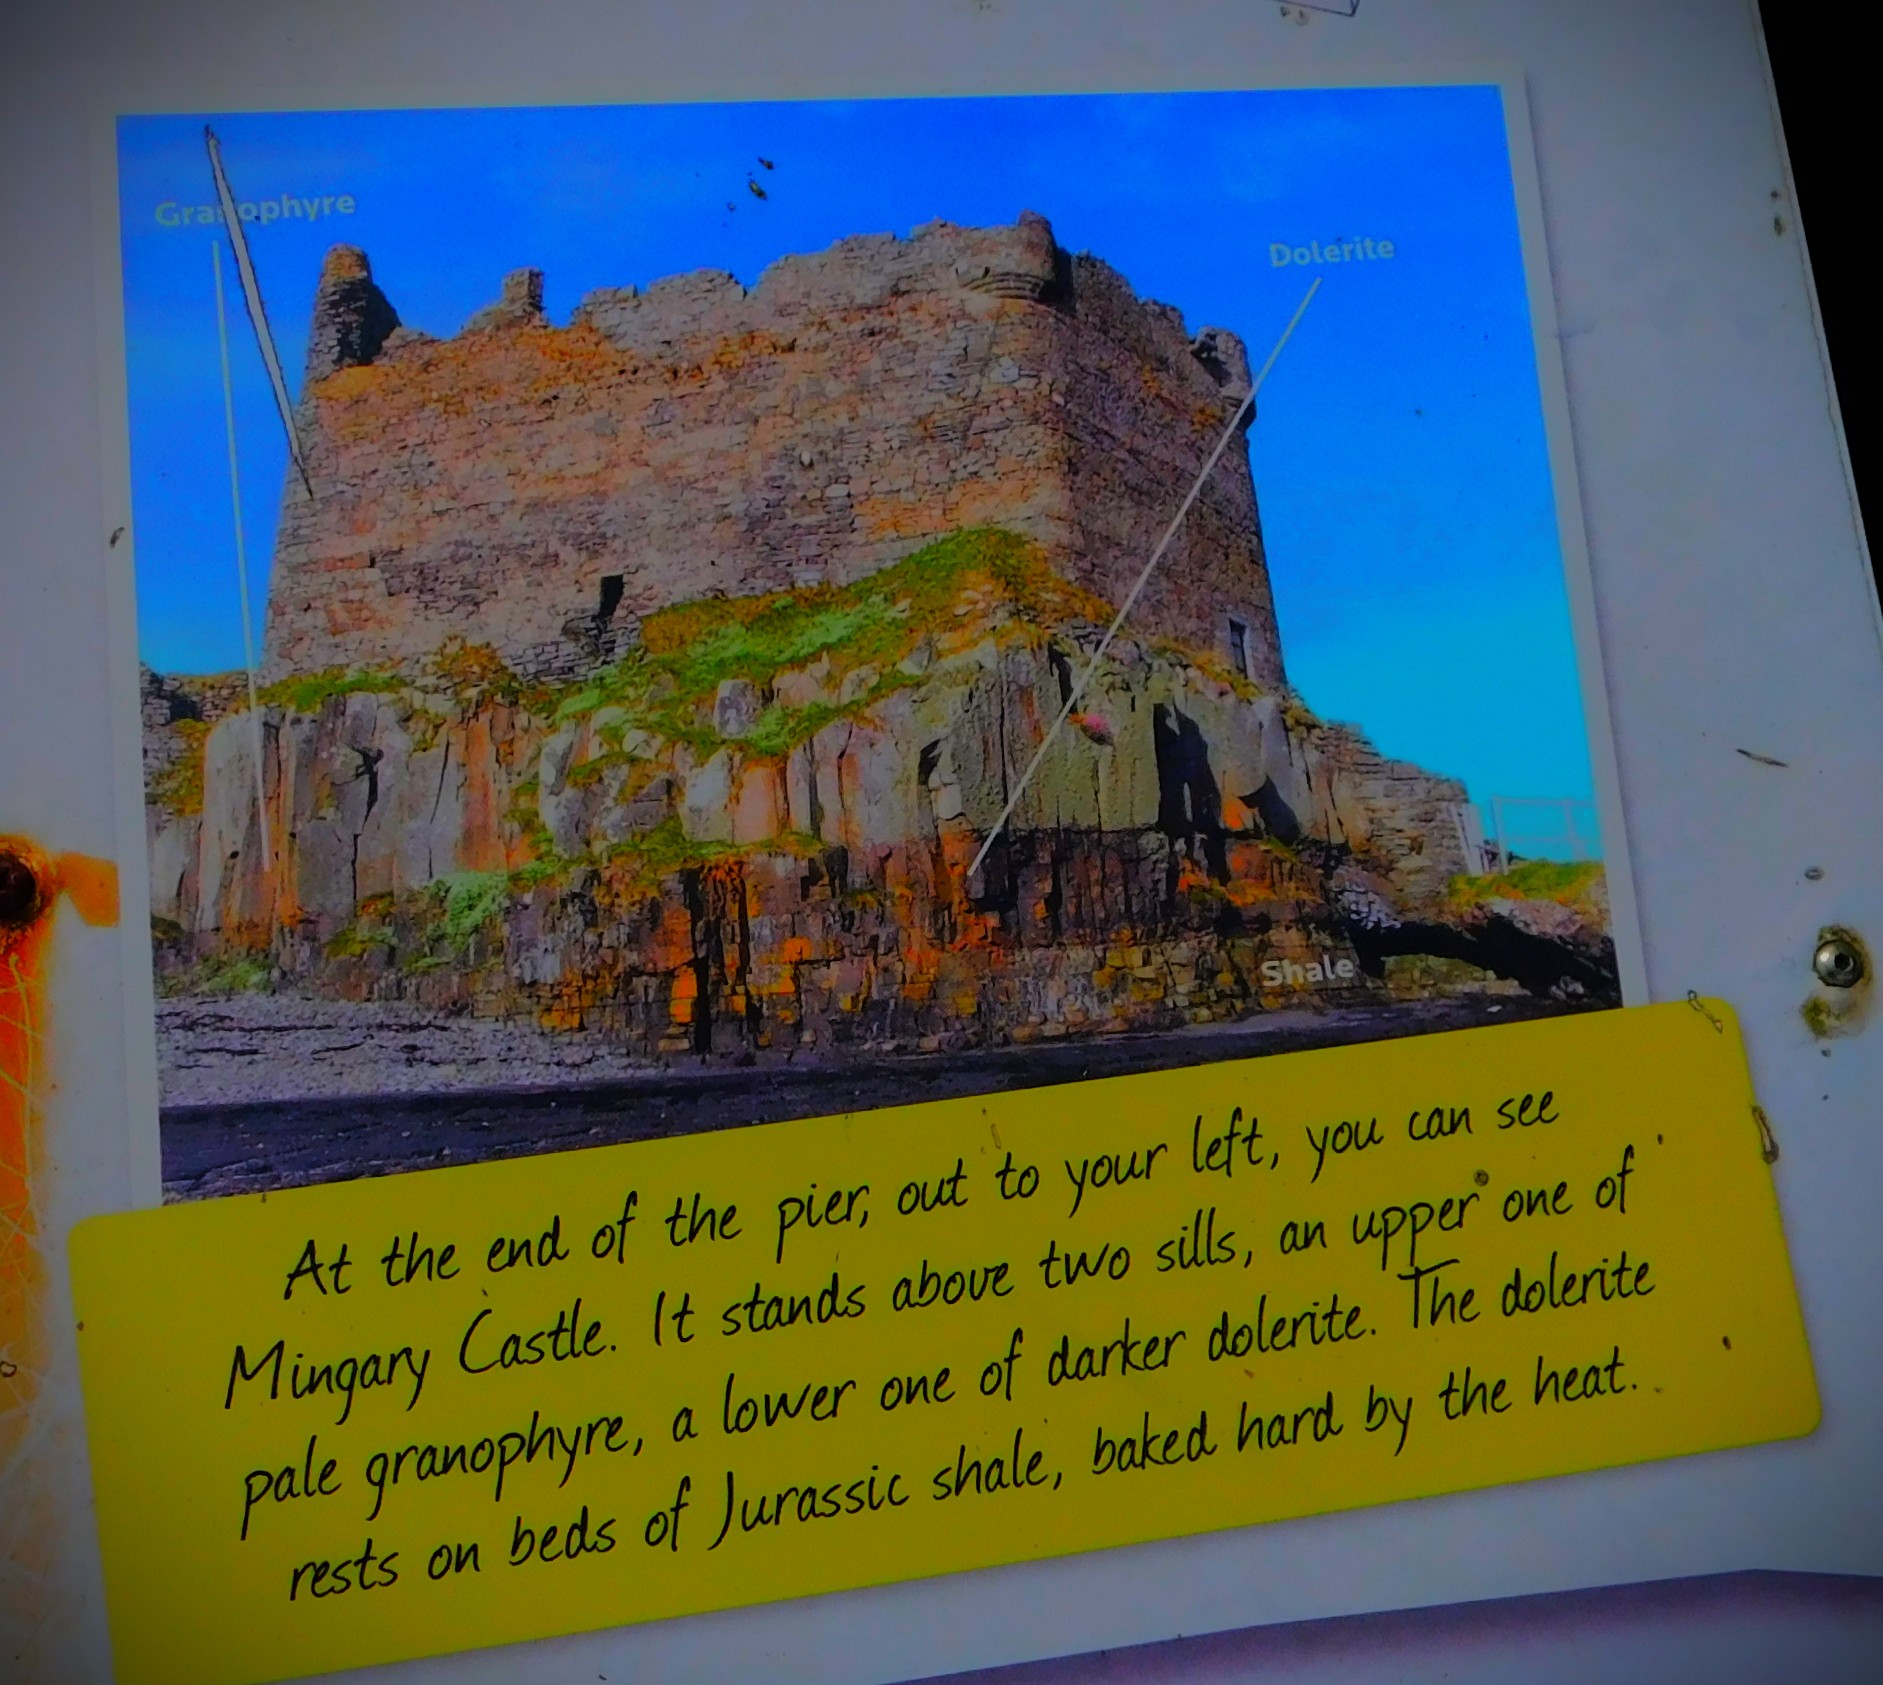 Granophyre
Dolerite
Shale
At the end of the pier, out to your left, you can see
Mingary Castle. It stands above two sills, an upper one of
pale granophyre, a lower one of darker dolerite. The dolerite
rests on beds of Jurassic shale, baked hard by the heat.